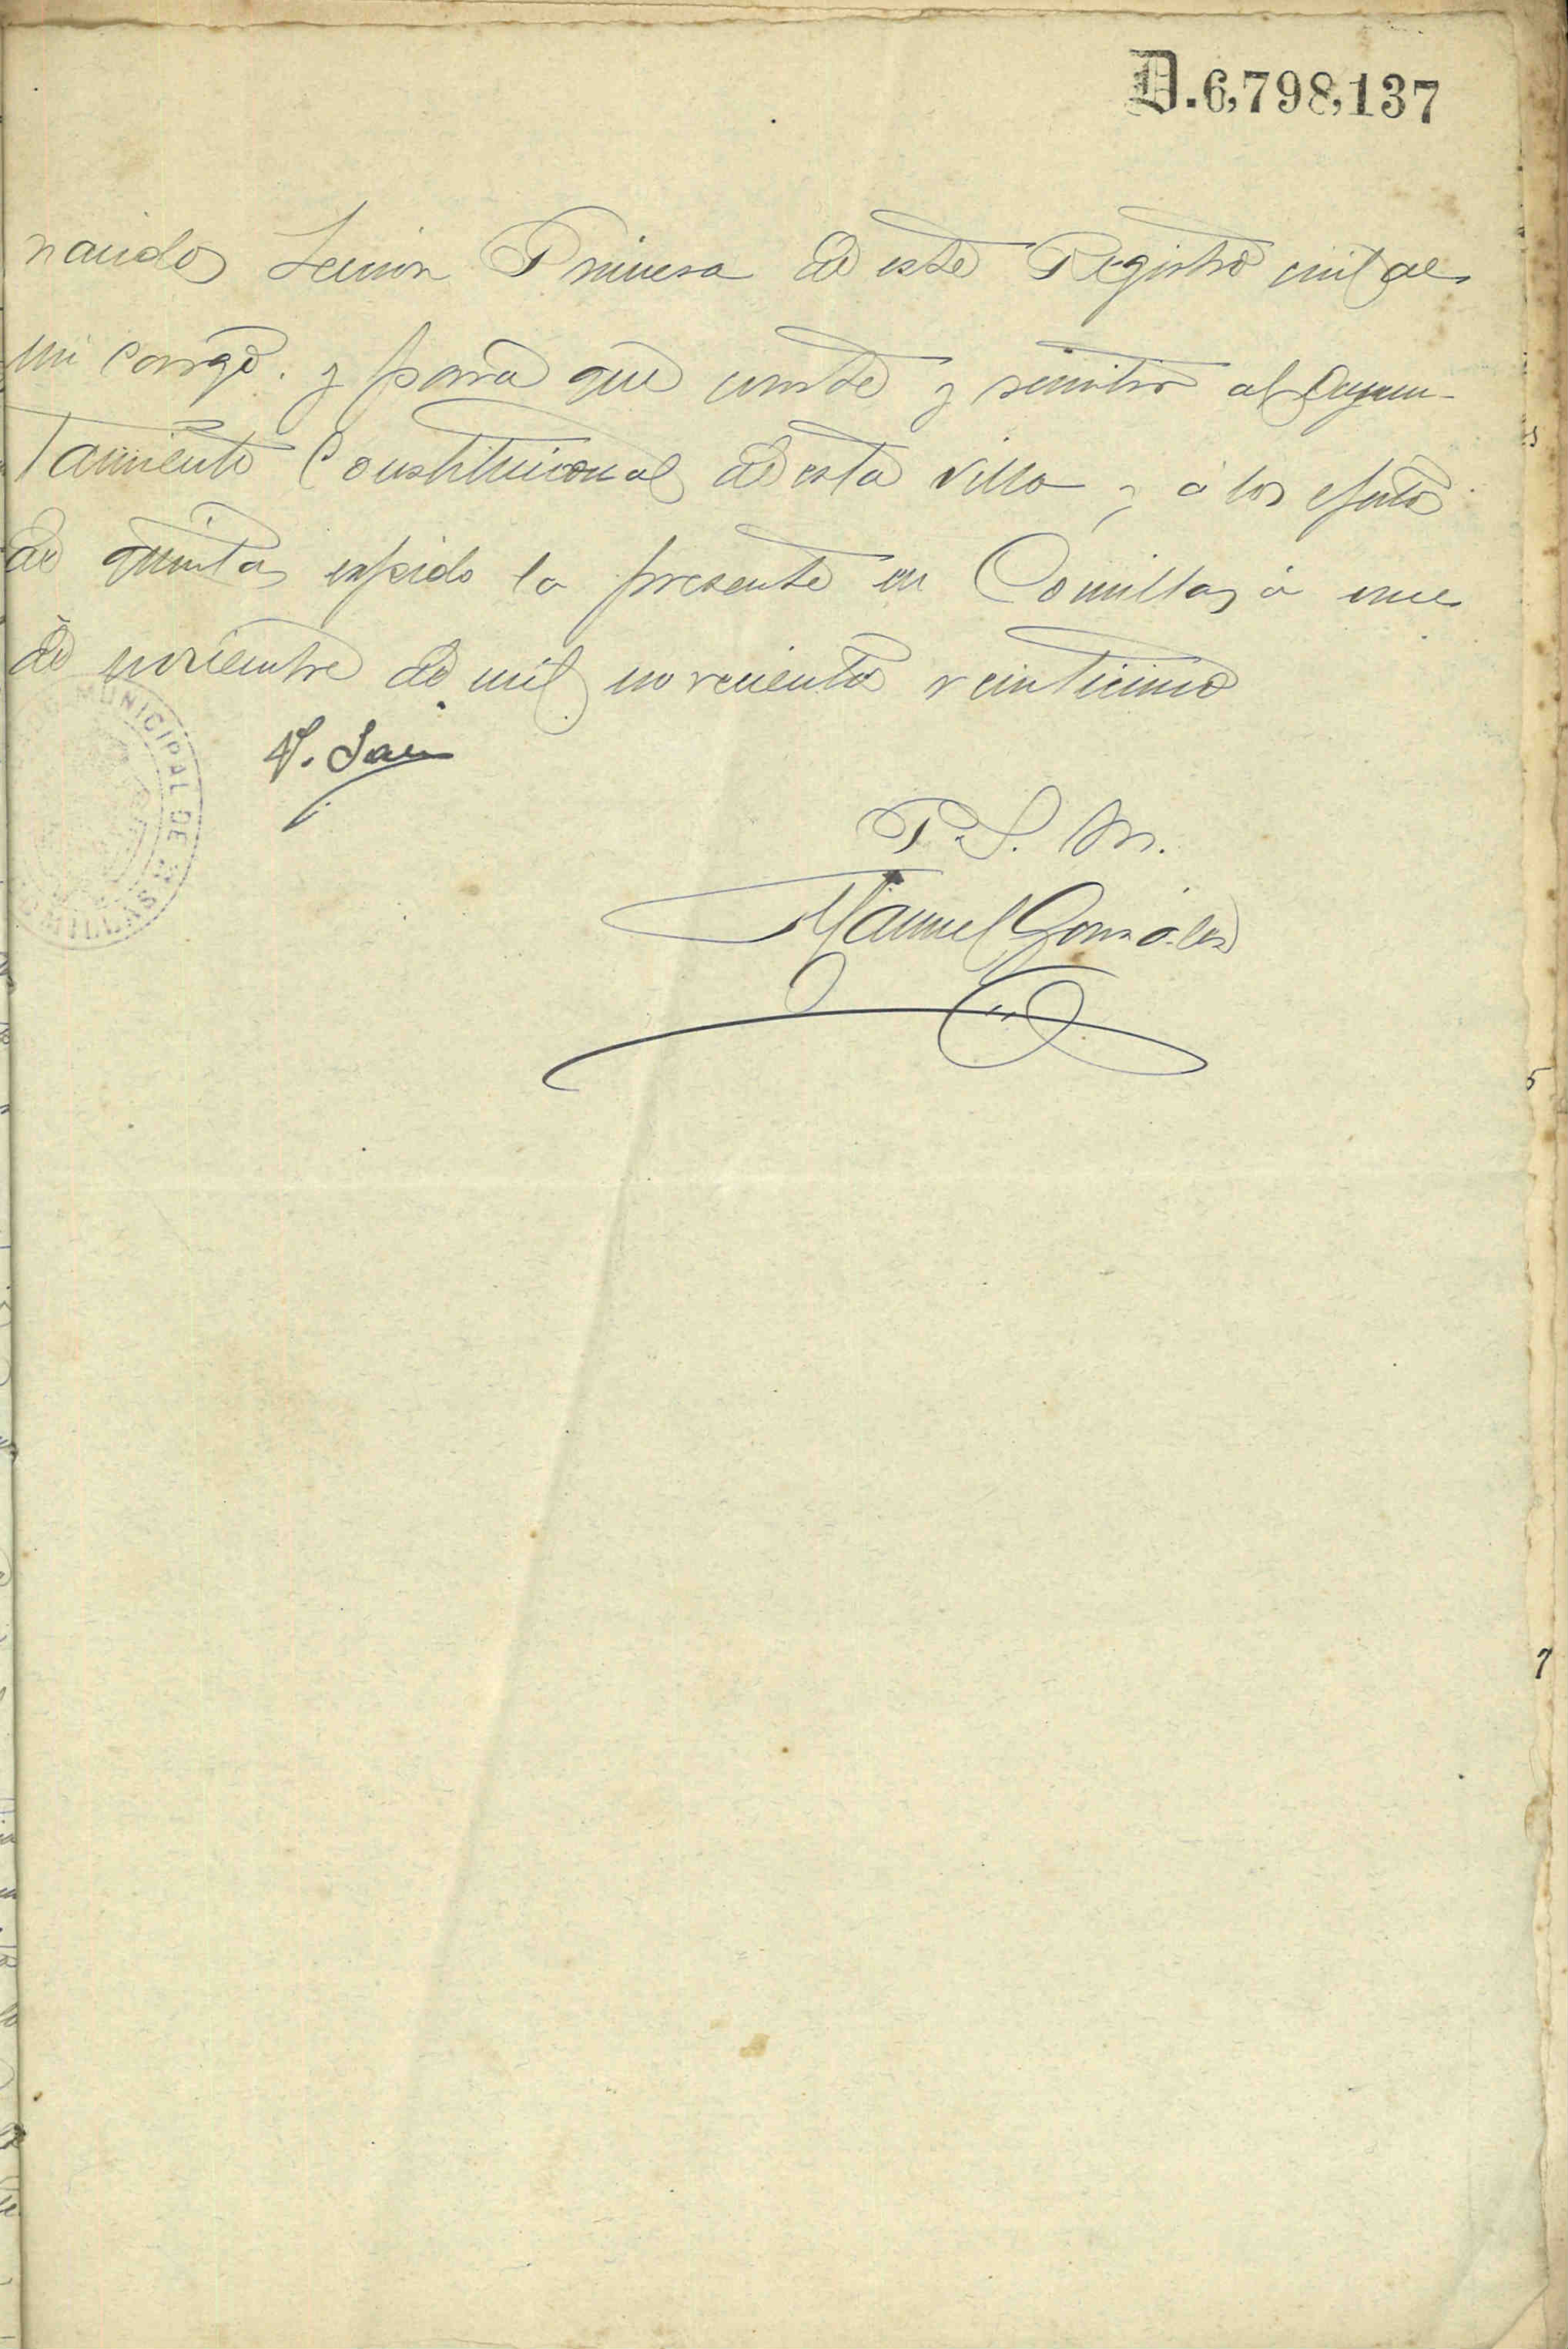 D.6,798,137
nacidos Sección Primera de este Registro civil de
mi cargo. y para que conste y remitir al Ayun-
tamiento Constitucional de esta villa, a los efectos
de quintas expido la presente en Comillas a once
de noviembre de mil novecientos veinticinco
V. Sain
P. S. M.
Manuel González
MUNICIPAL DE
COMILLAS